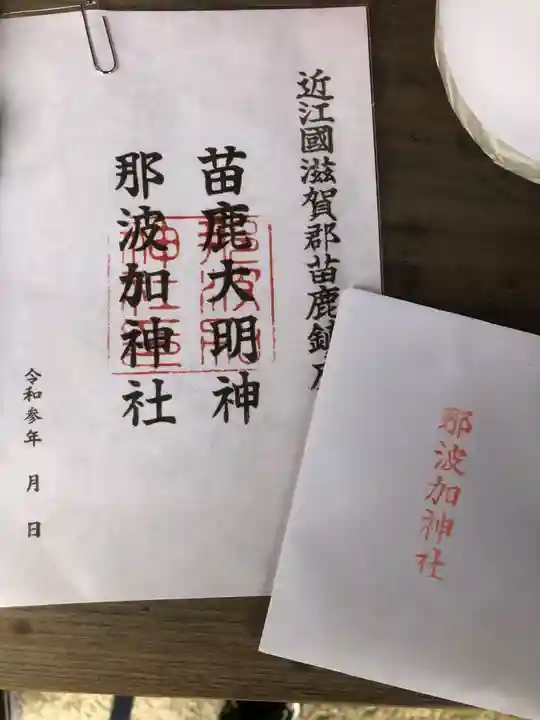 近江國滋賀郡苗鹿鎮座
苗鹿大明神
那波加神社
令和参年 月 日
那波加神社